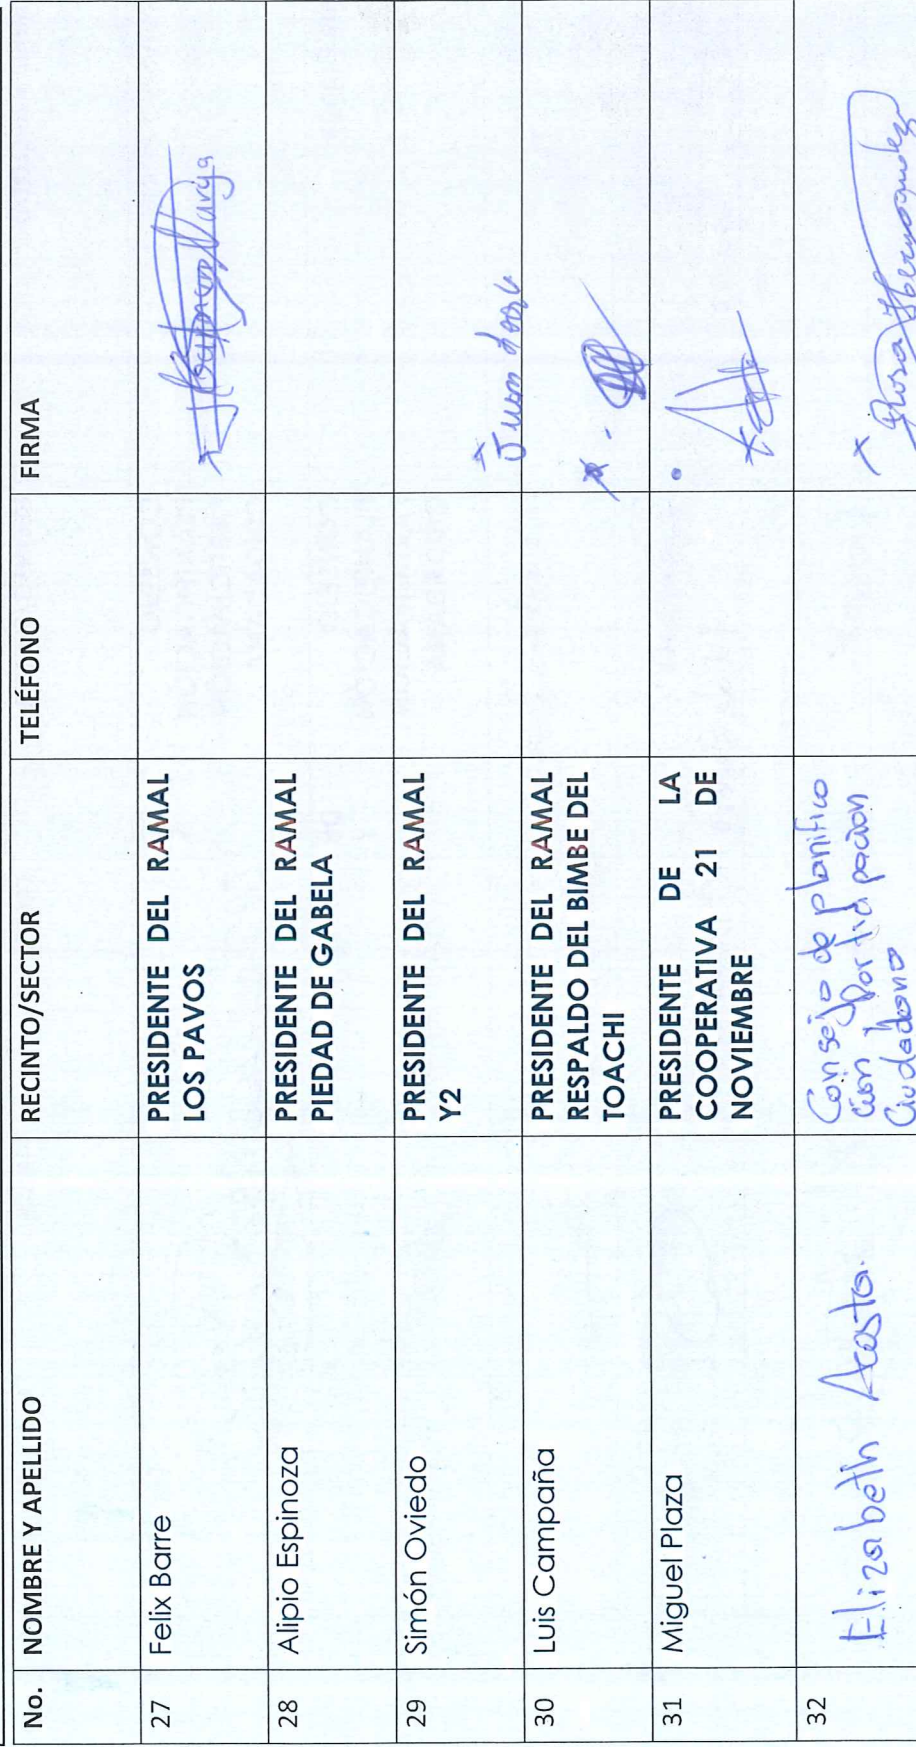 No. NOMBRE Y APELLIDO RECINTO/SECTOR TELÉFONO FIRMA
27 Felix Barre PRESIDENTE DEL RAMAL
LOS PAVOS
28 Alipio Espinoza PRESIDENTE DEL RAMAL
PIEDAD DE GABELA
29 Simón Oviedo PRESIDENTE DEL RAMAL
Y2
Juan
30 Luis Campaña PRESIDENTE DEL RAMAL
RESPALDO DEL BIMBE DEL
TOACHI
31 Miguel Plaza PRESIDENTE DE LA
COOPERATIVA 21 DE
NOVIEMBRE
32 Elizabeth Acosta. Consejo de planifica
cion participacion
Ciudadana